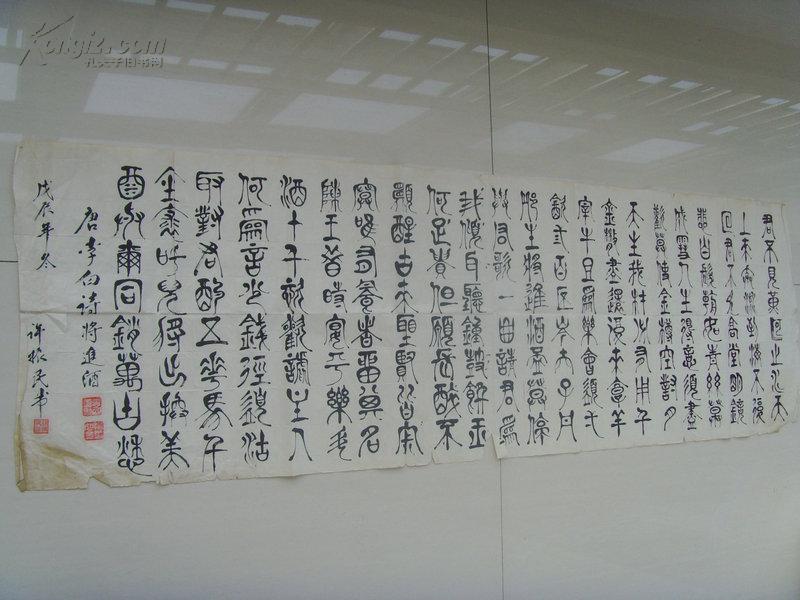 君不見黃河之水天
上來奔流到海不復
回君不見高堂明鏡
悲白髮朝如青絲暮
成雪人生得意須盡
歡莫使金樽空對月
天生我材必有用千
金散盡還復來烹羊
宰牛且爲樂會須一
飲三百杯岑夫子丹
邱生將進酒杯莫停
與君歌一曲請君爲
我傾耳聽鐘鼓饌玉
何足貴但願長醉不
願醒古來聖賢皆寂
寞唯有飲者留其名
陳王昔時宴平樂斗
酒十千恣歡謔主人
何爲言少錢徑須沽
取對君酌五花馬千
金裘呼兒將出換美
酒與爾同銷萬古愁
唐李白詩將進酒
戊辰年冬
許振民書
Kongfz.com
孔夫子旧书网